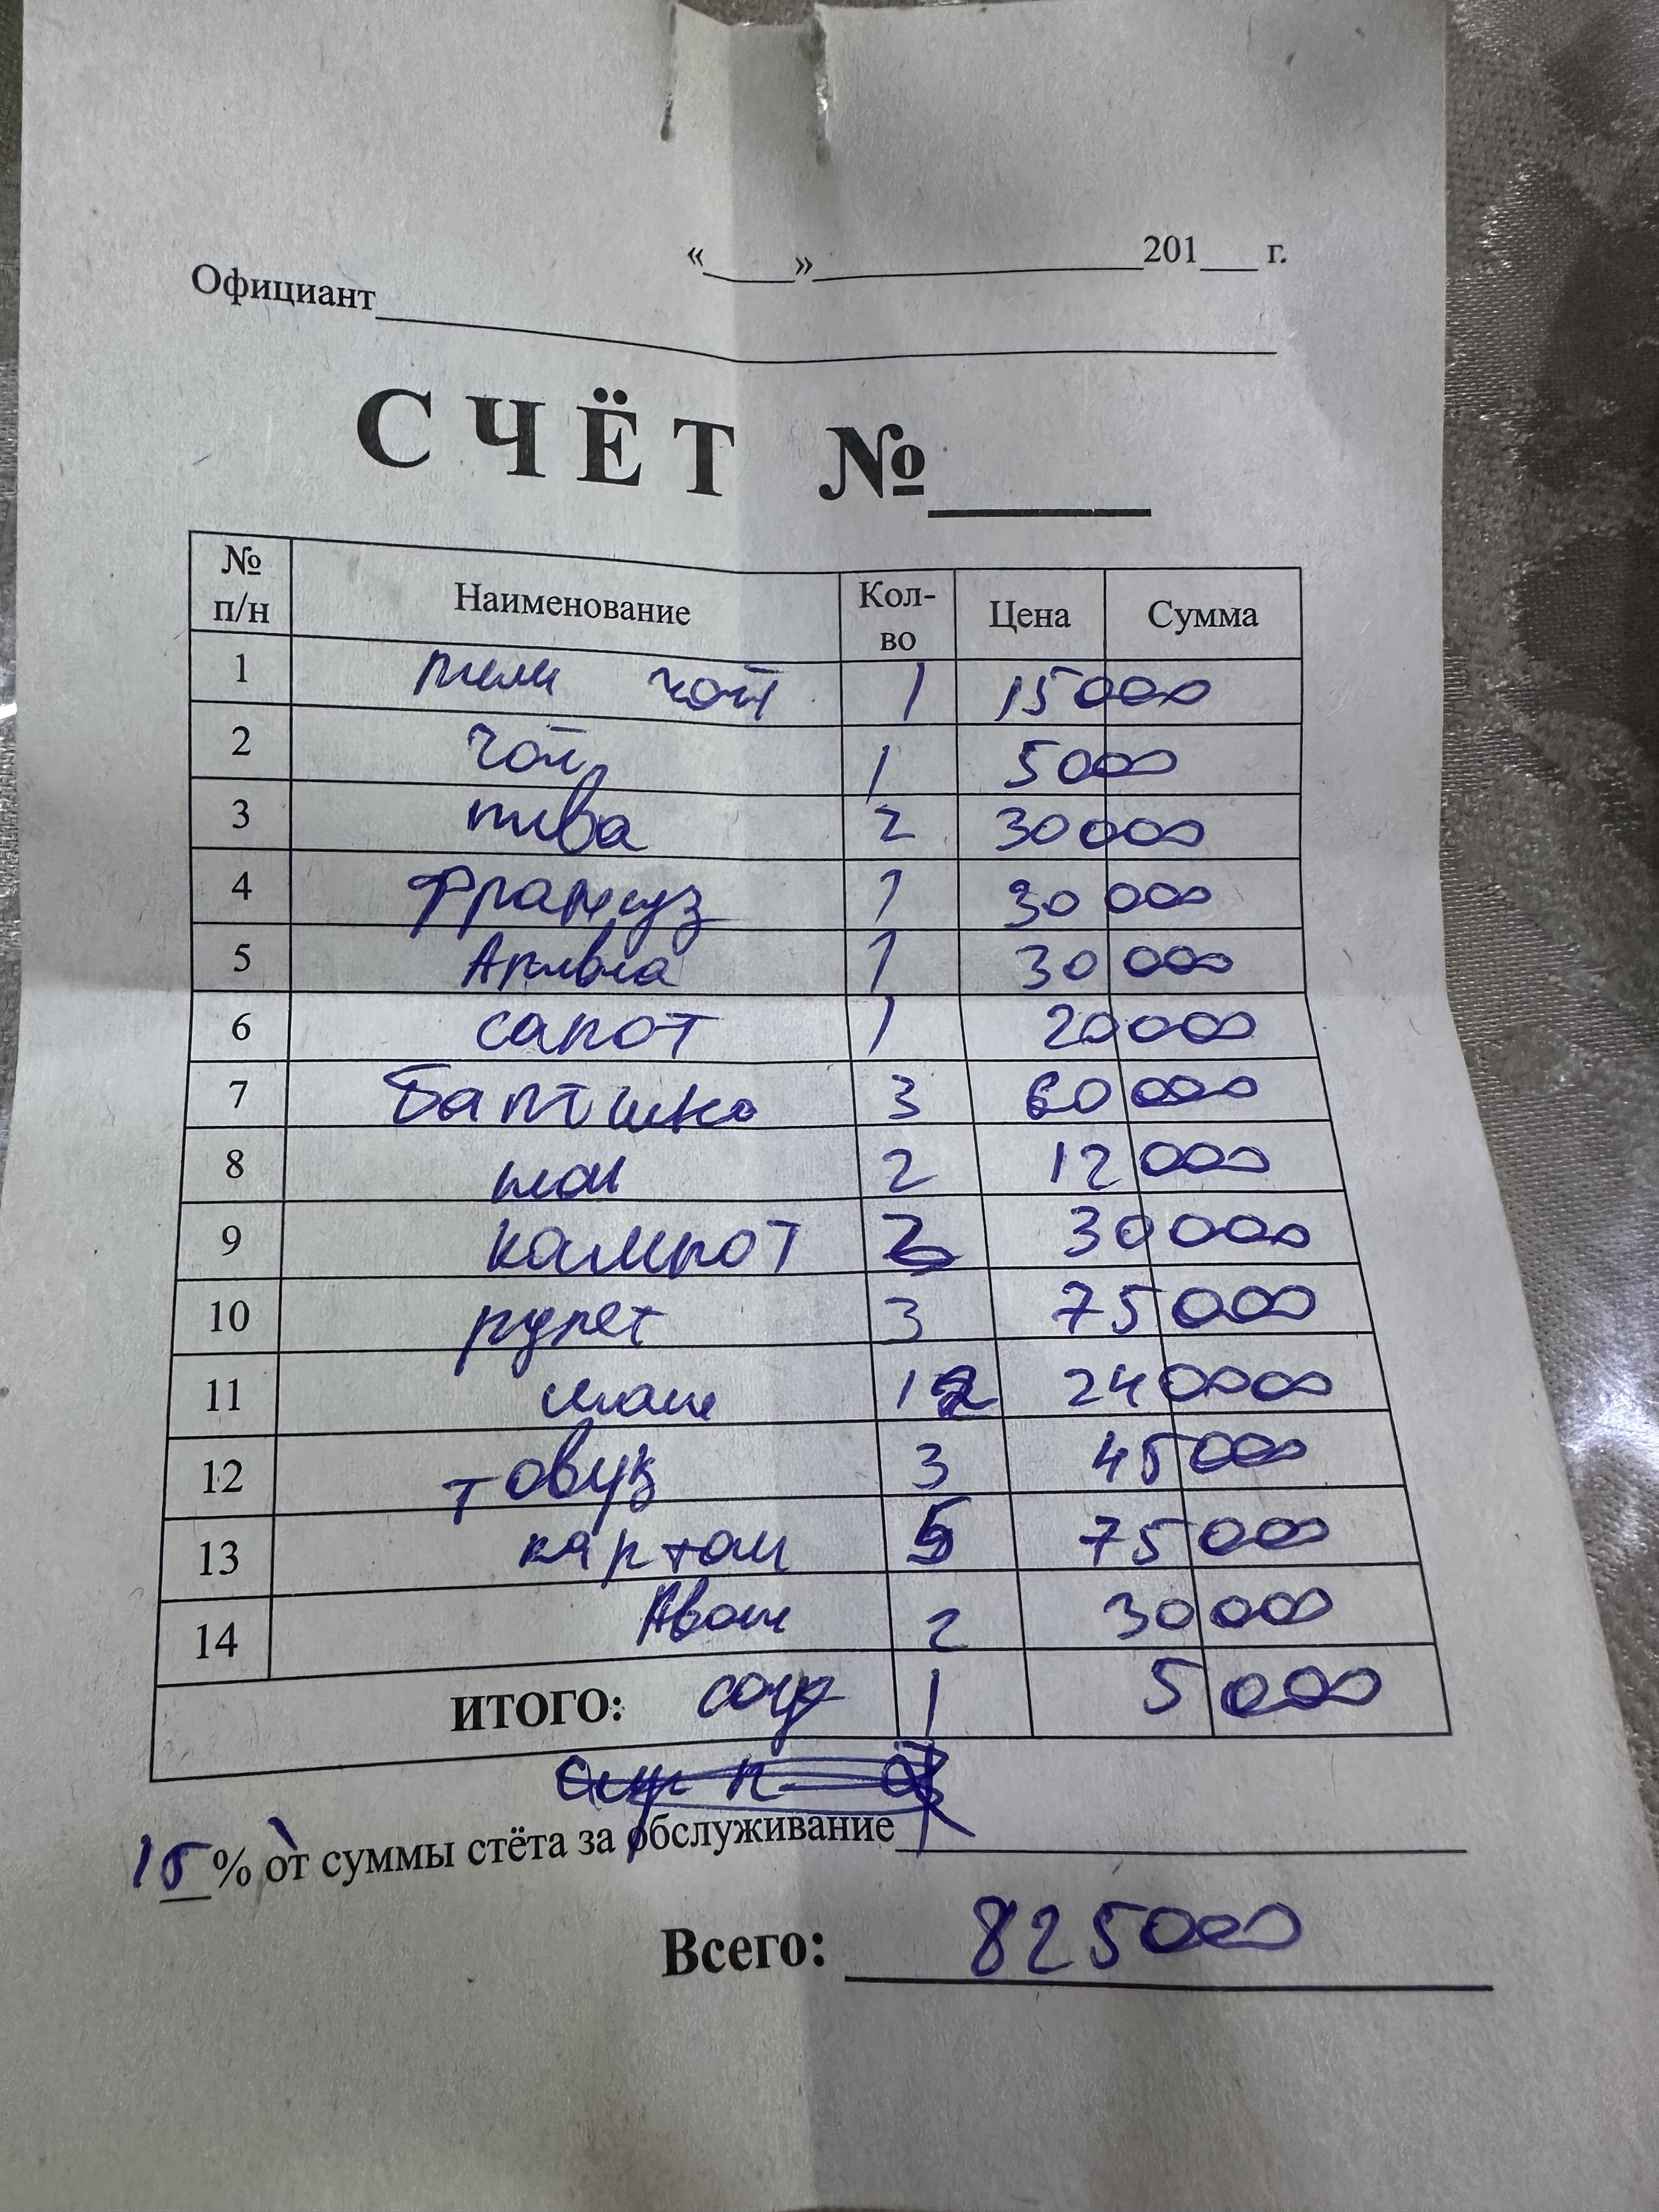 «____»____________201___ г.
Официант
СЧЁТ №____
№ п/н Наименование Кол-во Цена Сумма
1 чой 1 15000
2 чой 1 5000
3 пива 2 30000
4 Француз 1 30000
5 1 30000
6 сапот 1 20000
7 3 60000
8 нон 2 12000
9 кампот 2 30000
10 рулет 3 75000
11 12 240000
12 товуқ 3 45000
13 картош 5 75000
14 2 30000
ИТОГО: 1 5000
15% от суммы стёта за обслуживание
Всего: 825000